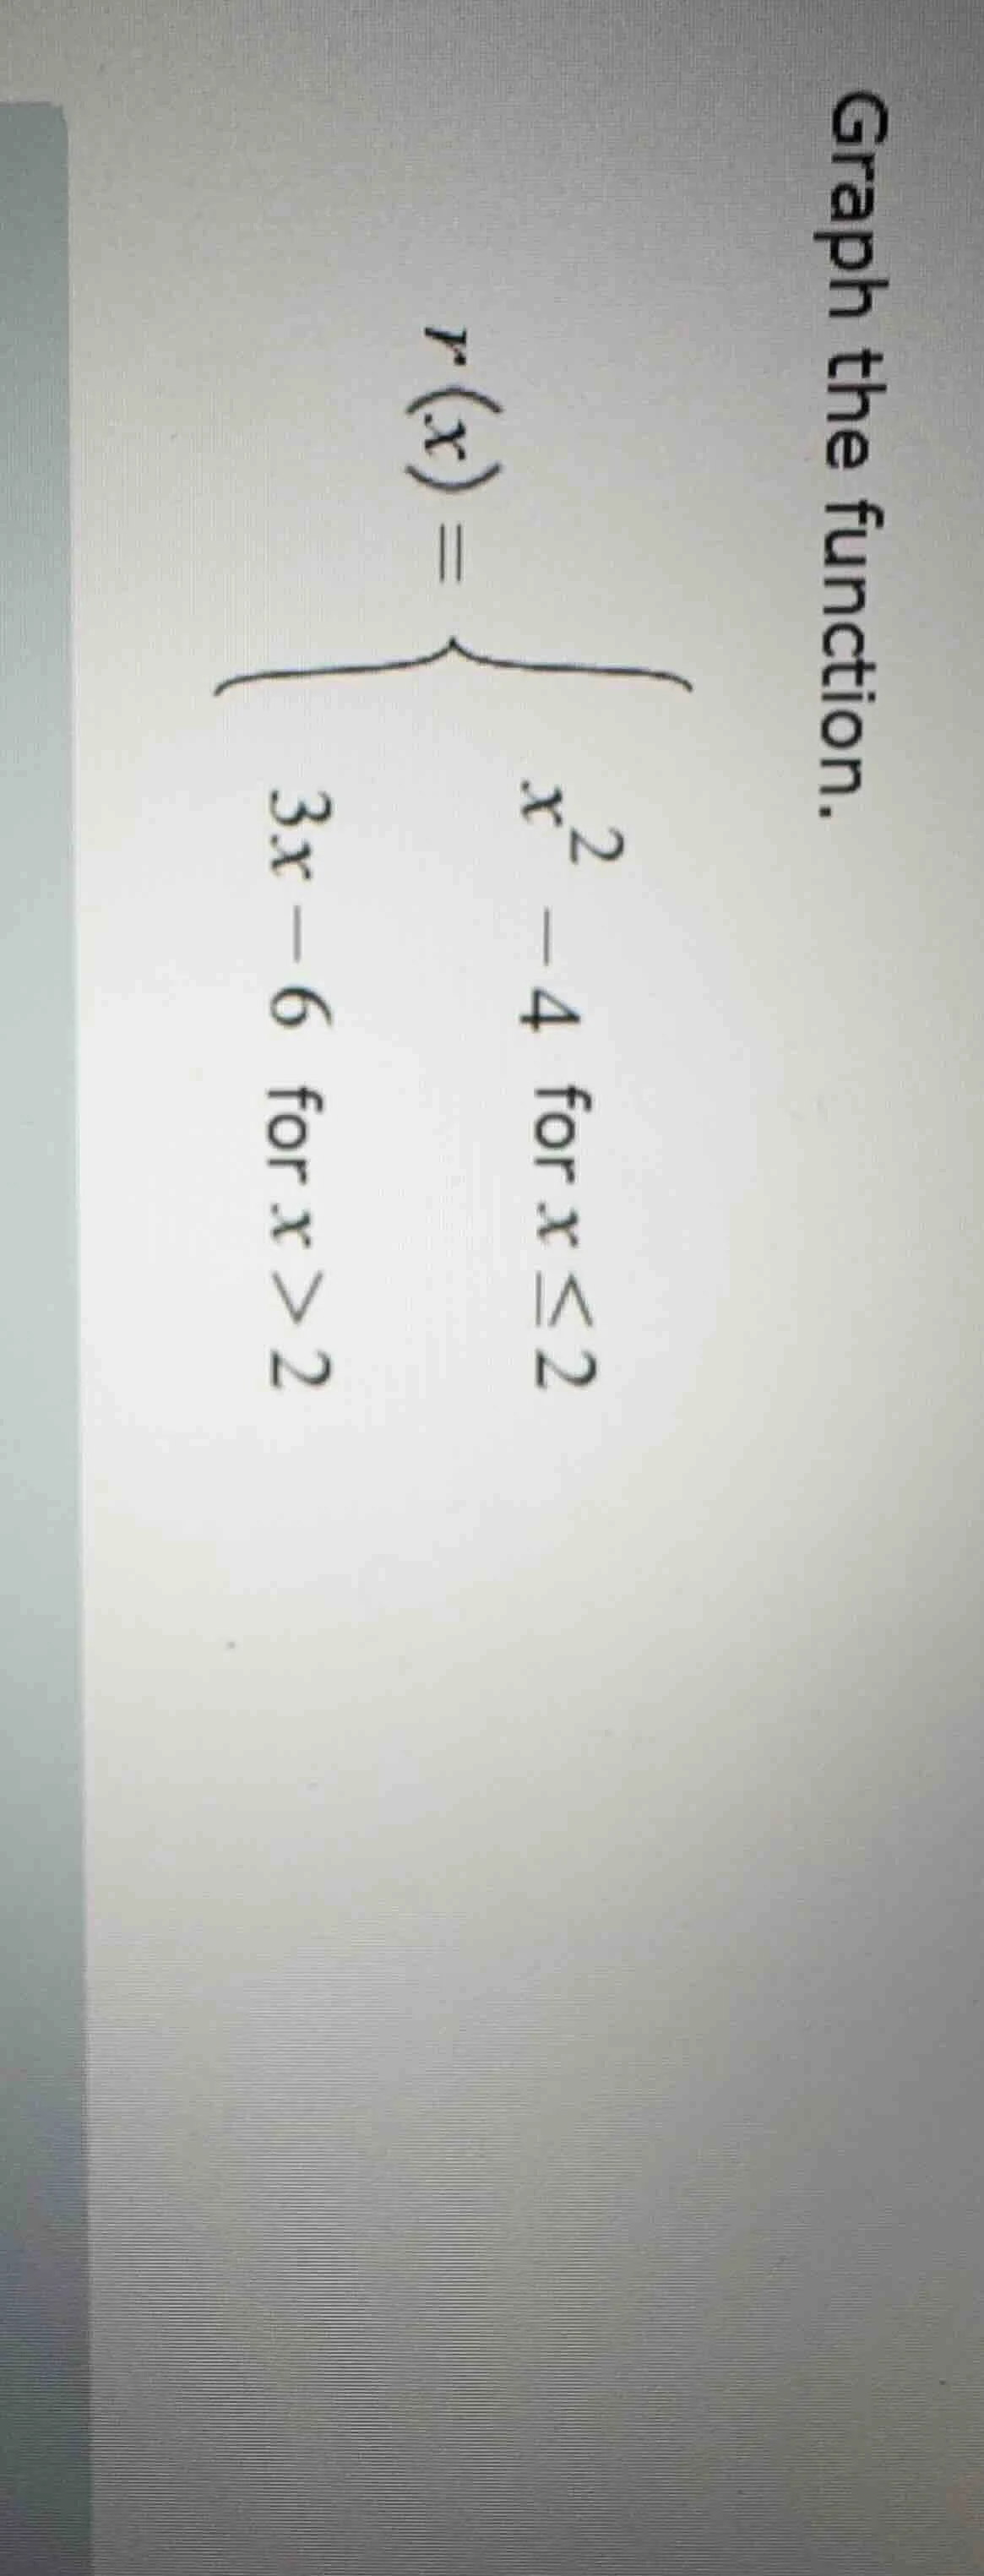 Graph the function.
x² − 4 for x ≤ 2
r(x) = {
3x − 6 for x > 2